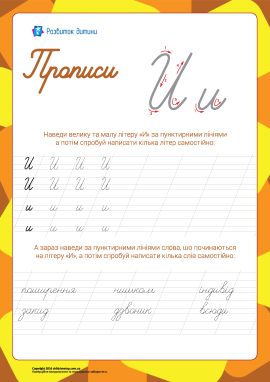 Розвиток дитини
Прописи
И и
Наведи велику та малу літеру «И» за пунктирними лініями
а потім спробуй написати кілька літер самостійно:
И И И И
И И И И
и и и и
и и и и
А зараз наведи за пунктирними лініями слова, що починаються
на літеру «И», а потім спробуй написати кілька слів самостійно:
поширення нишком індивід
закид дзвоник всюди